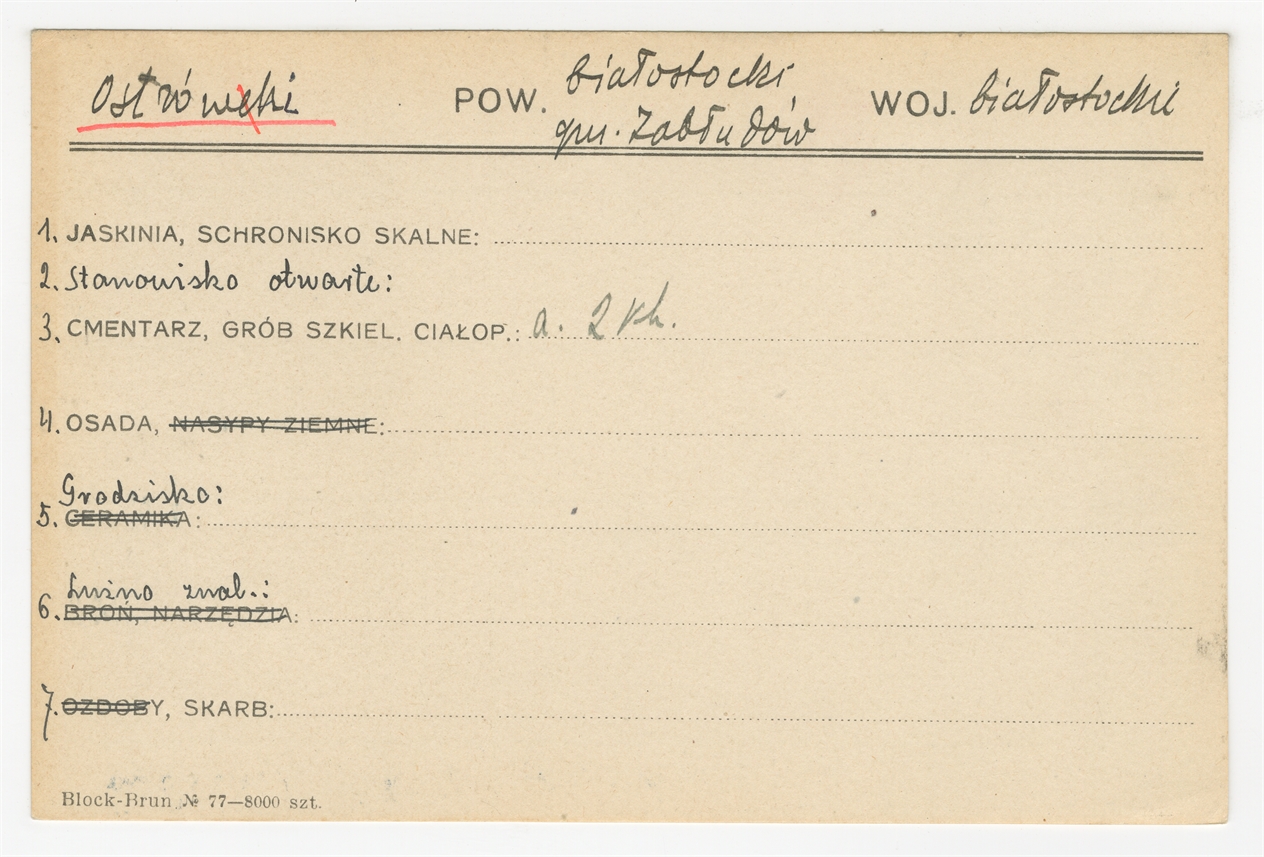 Ostrówki POW. białostocki WOJ. białostockie
gm. Zabłudów
1. JASKINIA, SCHRONISKO SKALNE:
2. Stanowisko otwarte:
3. CMENTARZ, GRÓB SZKIEL. CIAŁOP.: a. 2 Kh.
4. OSADA, NASYPY ZIEMNE:
Grodzisko:
5. CERAMIKA:
Luźno znal.:
6. BROŃ, NARZĘDZIA:
7. OZDOBY, SKARB:
Block-Brun № 77—8000 szt.